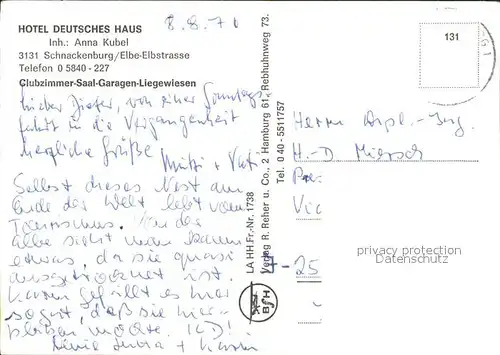 HOTEL DEUTSCHES HAUS
Inh.: Anna Kubel
3131 Schnackenburg/Elbe-Elbstrasse
Telefon 0 5840 - 227
Clubzimmer-Saal-Garagen-Liegewiesen
8.8.71
Lieber Dieter, von einer Sonntags-
fahrt in die Vergangenheit
herzliche Grüße
Mutti + Vati
Selbst dieses Nest am
Ende der Welt lebt vom
Tourismus. Von der
Elbe sieht man kaum
etwas, da sie quasi
ausgetrocknet ist.
Karin gefällt es hier
sogar, daß sie hier
bleiben möchte.
Deine + Karin
LA.HH.Fr.-Nr. 1738
Verlag R. Reher u. Co., 2 Hamburg 61, Rebhuhnweg 73.
Tel. 0 40-5511757
BSH
131
Herrn Dipl.-Ing.
H.-D.
privacy protection
AnsichtskartenCenter
25